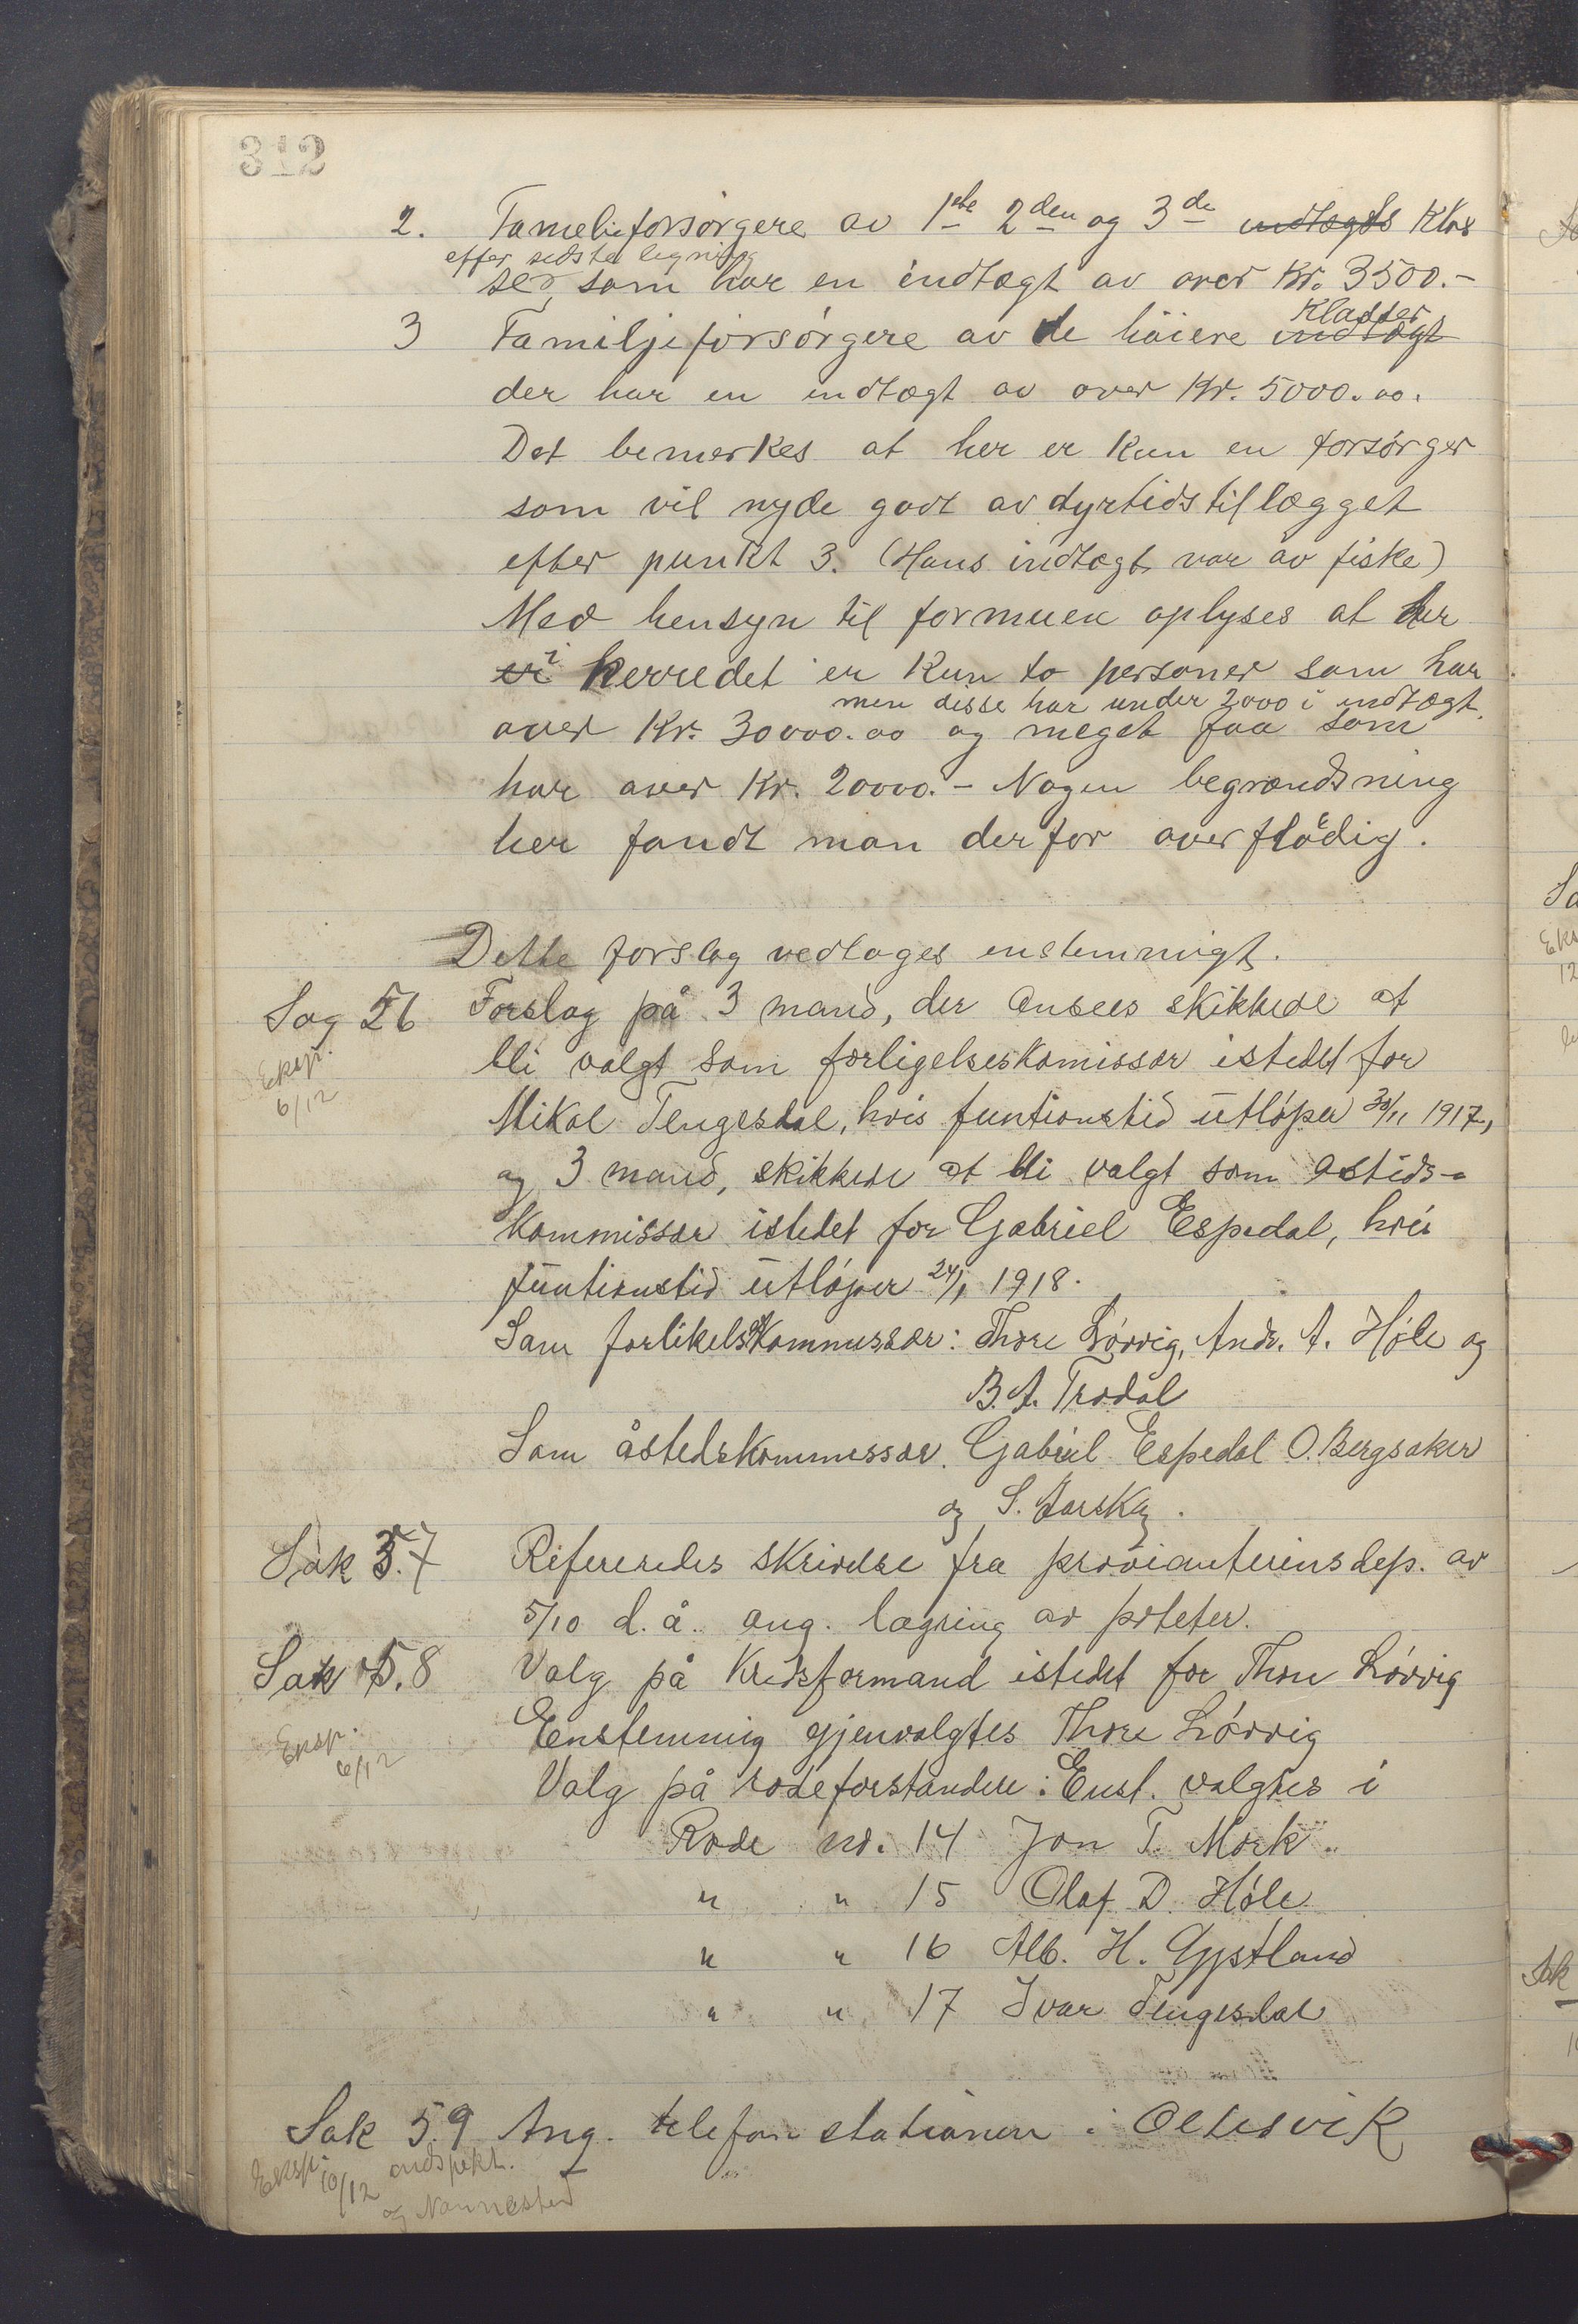 312
2. Familieforsørgere av 1ste 2den og 3de indtægts Klas
efter sidste ligning
ser, som har en indtægt av over Kr. 3500.-
Klasser
3 Familjeforsørgere av de høiere indtægt
der har en indtægt av over Kr. 5000.00.
Det bemerkes at her er kun en forsørger
som vil nyde godt av dyrtidstillægget
efter punkt 3. (Hans indtægt var av fiske)
Med hensyn til formuen oplyses at der
i herredet er kun to personer som har
men disse har under 2000 i indtægt.
over Kr. 30000.00 og meget faa som
har over Kr. 20000.- Nogen begrændsning
her fandt man derfor overflødig.
Dette forslag vedtages enstemmigt.
Sag 56 Forslag på 3 mand, der ansees skikkede at
Eksp. 6/12
bli valgt som forligelseskomissær istedet for
Mikal Tengesdal, hvis funtionstid utløper 30/11 1917,
og 3 mand, skikkede at bli valgt som åsteds-
kommissær istedet for Gabriel Espedal, hvis
funtionstid utløper 24/1 1918.
Som forlikelseskommissær: Thore Løvvig, Andr. A. Høle og
B. A. Trodal
Som åstedskommissær. Gabriel Espedal O. Bergsaker
og S.
Sak 5.7 Refereredes skrivelse fra provianterinsdep. av
5/10 d.å. ang. lagring av poteter.
Sak 5.8 Valg på Kredsformand istedet for Thore Løvvig
Eksp. 6/12
Enstemmig gjenvalgtes Thore Løvvig
Valg på rodeforstandere: Enst. valgtes i
Rode no. 14 Jon T. Mørk
" " 15 Olaf D. Høle
" " 16 Alb. H. Apsland
" " 17 Ivar Tengesdal
Sak 5.9 Ang. telefonstationen i Oltesvik
Eksp. 10/12
og Nannestad